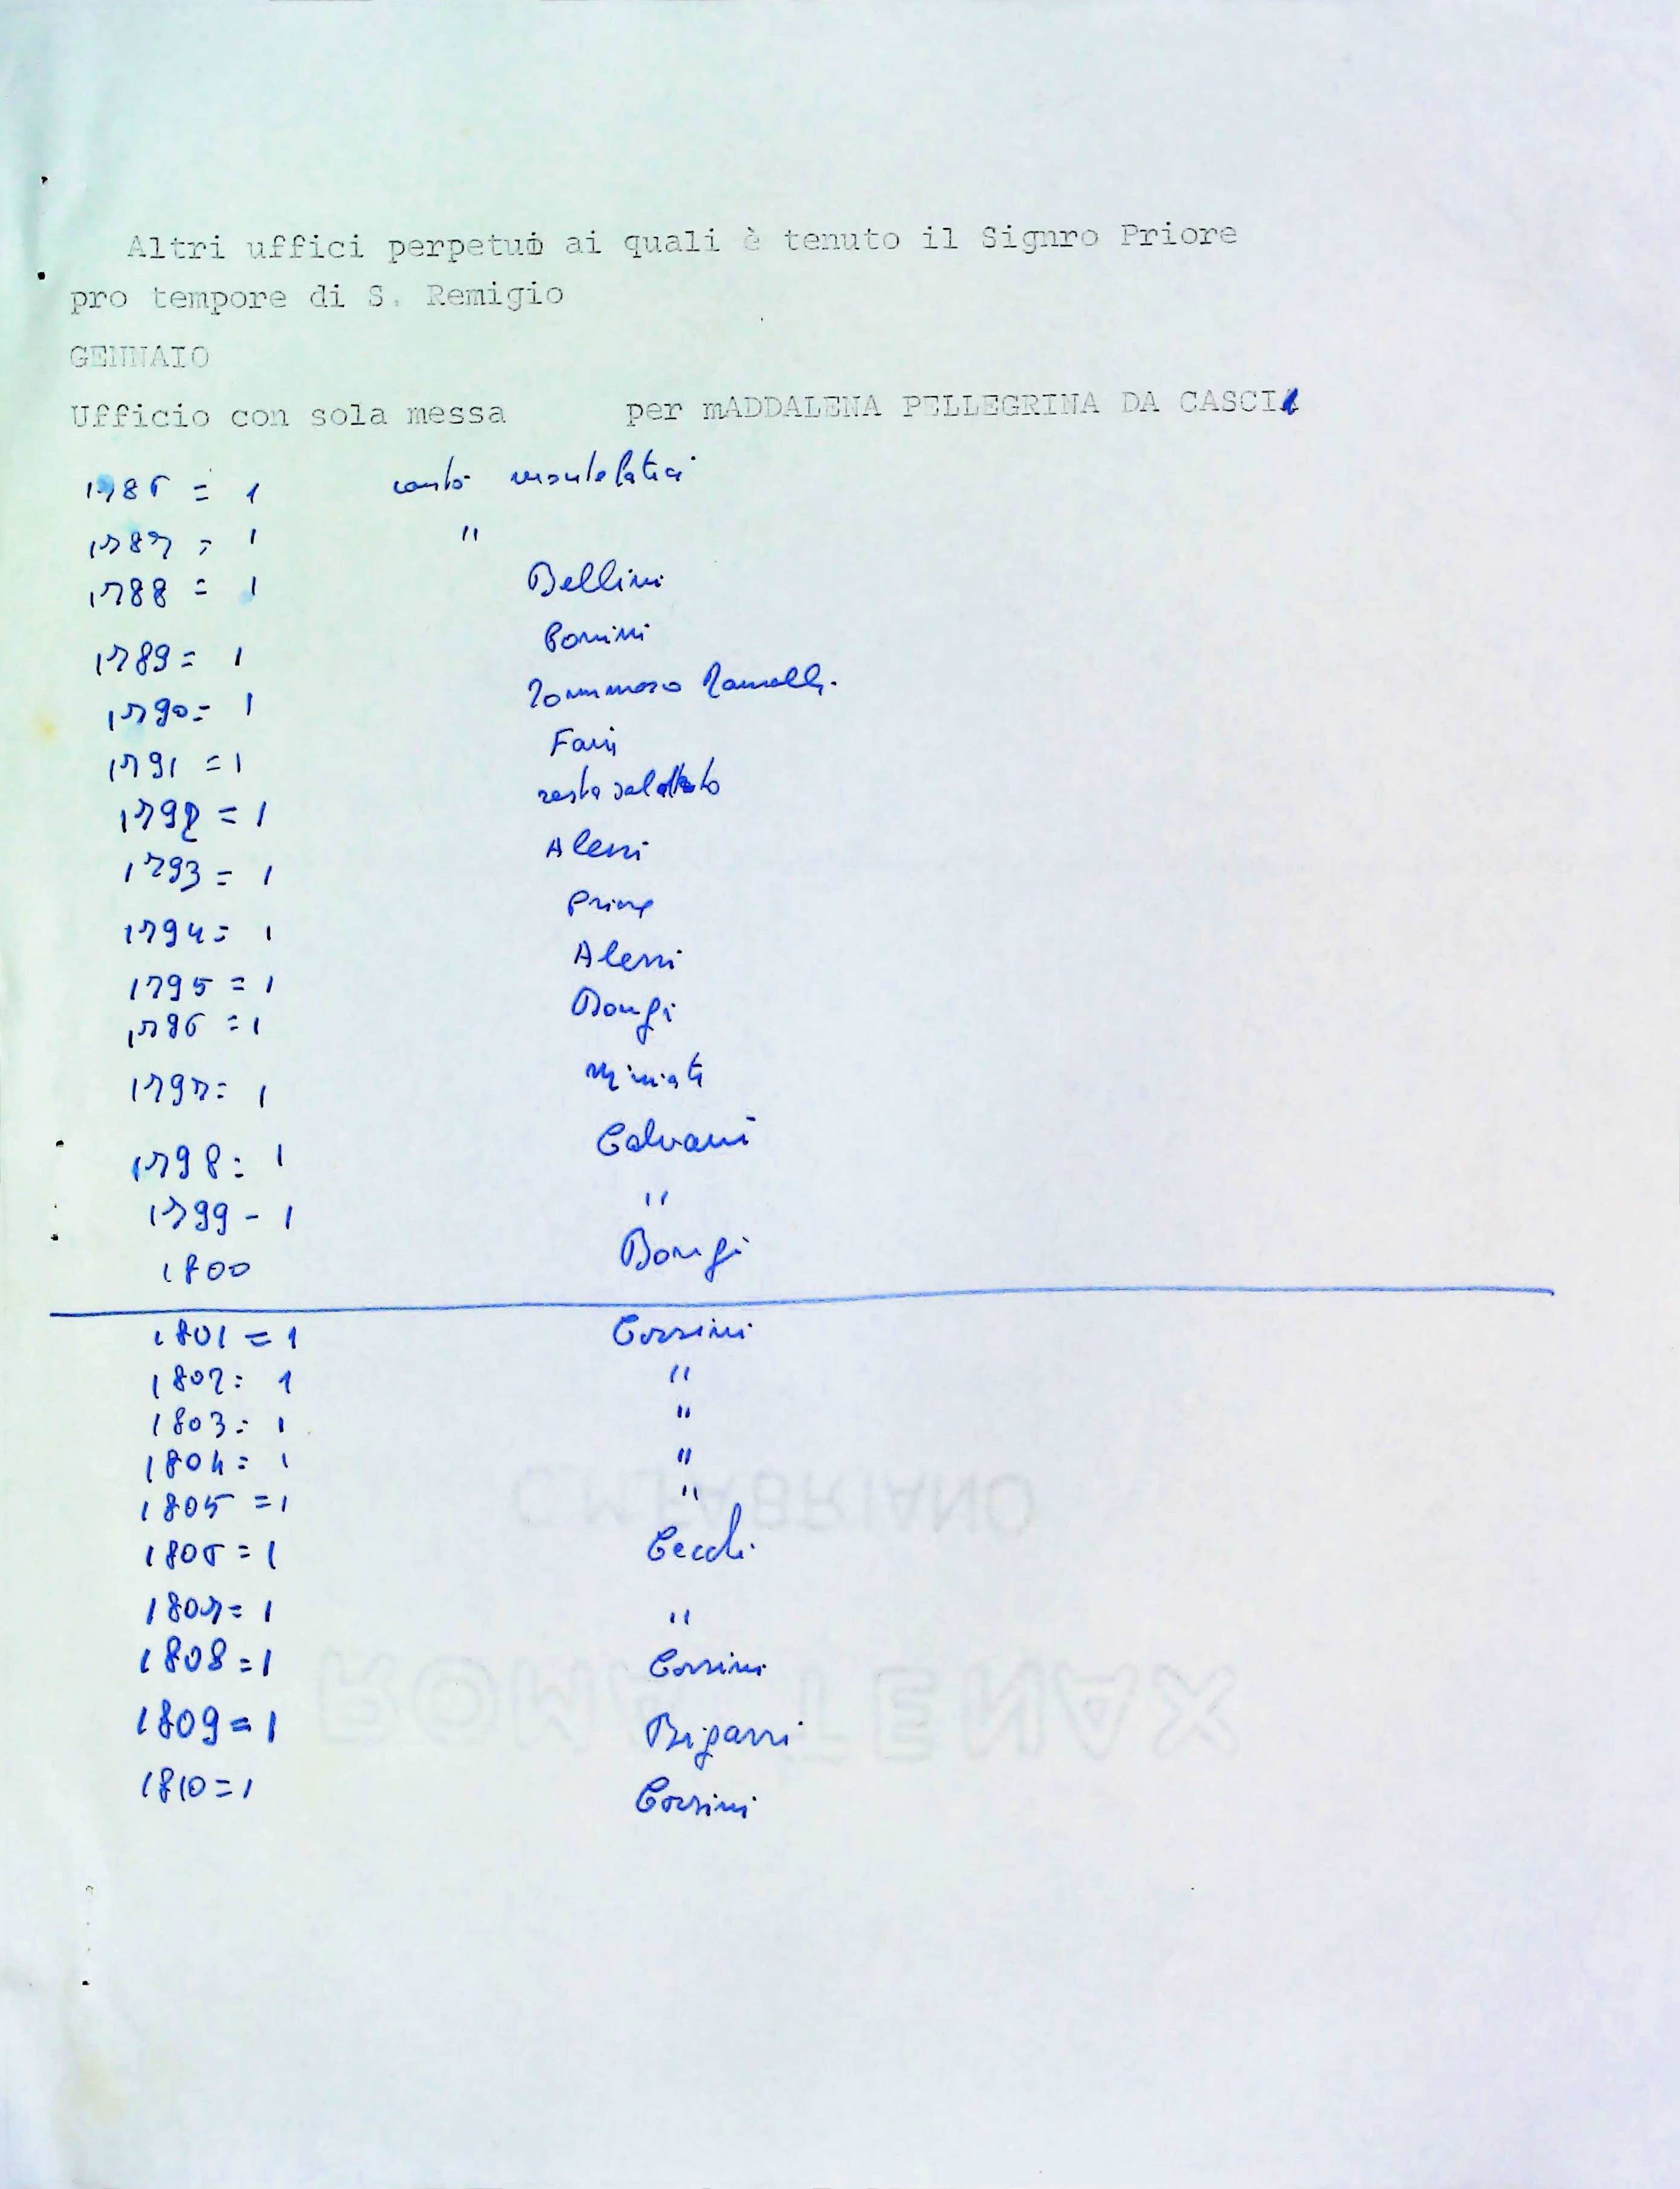 Altri uffici perpetui ai quali è tenuto il Signro Priore
pro tempore di S. Remigio
GENNAIO
Ufficio con sola messa per mADDALENA PELLEGRINA DA CASCIA
1786 = 1 cantò montelatici
1787 = 1 "
1788 = 1 Bellini
1789 = 1
1790 = 1 Tommaso
1791 = 1
1792 = 1 resta
1793 = 1 Alessi
1794 = 1 Priore
1795 = 1 Alessi
1796 = 1 Bongi
1797 = 1 Miniati
1798 = 1 Calvani
1799 - 1 "
1800 Bongi
1801 = 1 Corsini
1802 = 1 "
1803 = 1 "
1804 = 1 "
1805 = 1 "
1806 = 1 Cecchi
1807 = 1 "
1808 = 1 Corsini
1809 = 1 Bigazzi
1810 = 1 Corsini
C.M.FABRIANO
ROMA TENAX